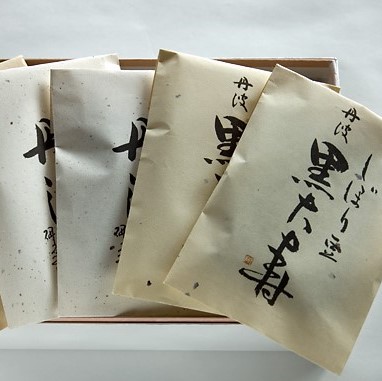 しぼり豆
丹波
黒大寿
丹波
黒
丹
丹